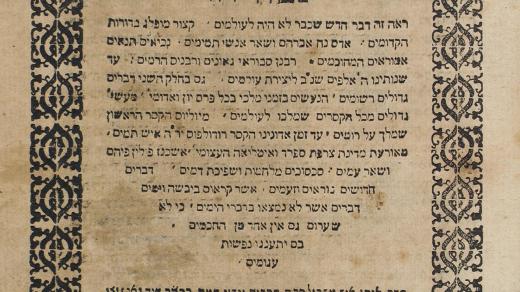 ראה זה דבר חדש שכבר לא היה לעולמים ׳ קצור מופלג בדורות
הקדומים ׳ אדם נח אברהם ושאר אנשי תמימים ׳ נביאים תנאים
אמוראים המחוכמים ׳ רבנן סבוראי גאונים ורבנים הרמים ׳ עד
שנותינו ה׳ אלפים שנ״ב ליצירת עורמים ׳ גם בחלק השני דברים
גדולים רשומים ׳ הנעשים בזמני מלכי בבל פרס יון ואדומי ׳ מעשי׳
גדולים מכל הקסרים שמלכו לעולמים ׳ מיוליוס הקסר הראשון
שמלך על רומים ׳ עד זמן אדונינו הקסר רודולפוס יר״ה איש תמים ׳
מאורעות מדינת צרפת ספרד ואיטליאה העצומי׳ אשכנז פולין פיהם
ושאר עמים ׳ סכסוכים מלחמות ושפיכת דמים ׳ דברים
חדושים נוראים וזעמים ׳ אשר קראים ביבשה וימים
דברים אשר לא נמצאו בדברי הימים ׳ כי לא
שערום גם אין אחד מן החכמים ׳
בם יתענגו נפשות
ענומים ׳